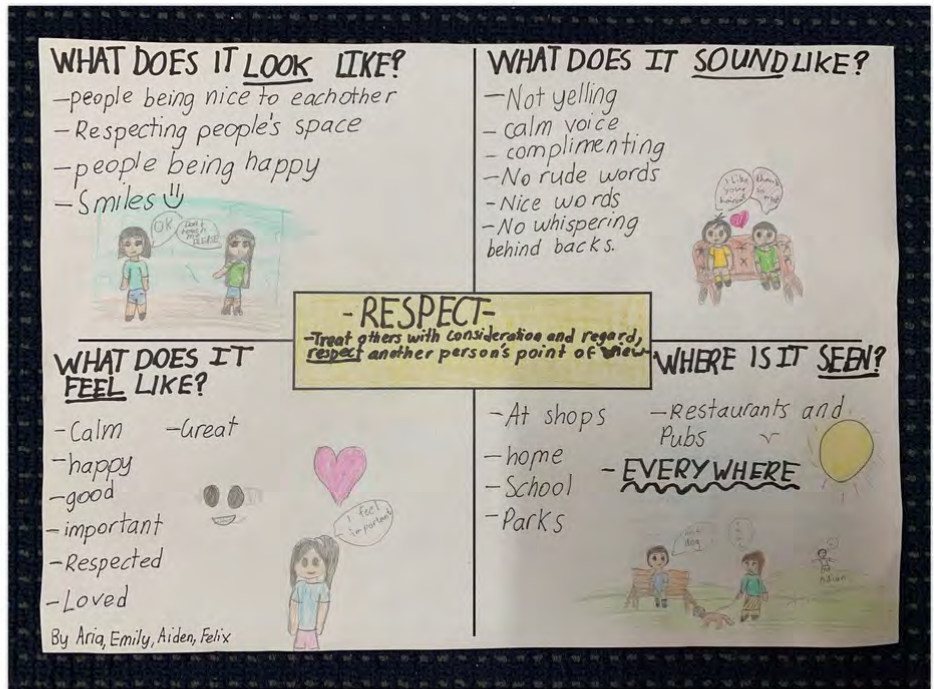 WHAT DOES IT LOOK LIKE?
-people being nice to eachother
- Respecting people's space
-people being happy
-Smiles
OK
Don't touch me please
WHAT DOES IT SOUND LIKE?
-Not yelling
- calm voice
- complimenting
-No rude words
-Nice words
-No whispering
behind backs.
I like
your
thank
-RESPECT-
-Treat others with consideration and regard,
respect another person's point of view-
WHAT DOES IT
FEEL LIKE?
-Calm -Great
-happy
-good
-important
-Respected
-Loved
I feel
important
By Aria, Emily, Aiden, Felix
WHERE IS IT SEEN?
-At shops -Restaurants and
Pubs
-home
-School
-Parks
- EVERYWHERE
dog